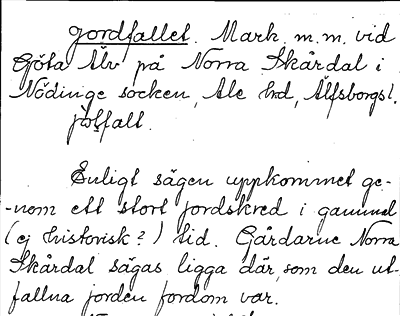 Jordfallet. Mark m.m. vid
Göta Älv på Norra Skårdal i
Nödinge socken, Ale hd, Älfsborgsl.
Enligt sägen uppkommet ge-
-nom ett stort jordskred i gammal
(ej historisk?) tid. Gårdarne Norra
Skårdal sägas ligga där, som den ut-
fallna jorden fordom var.